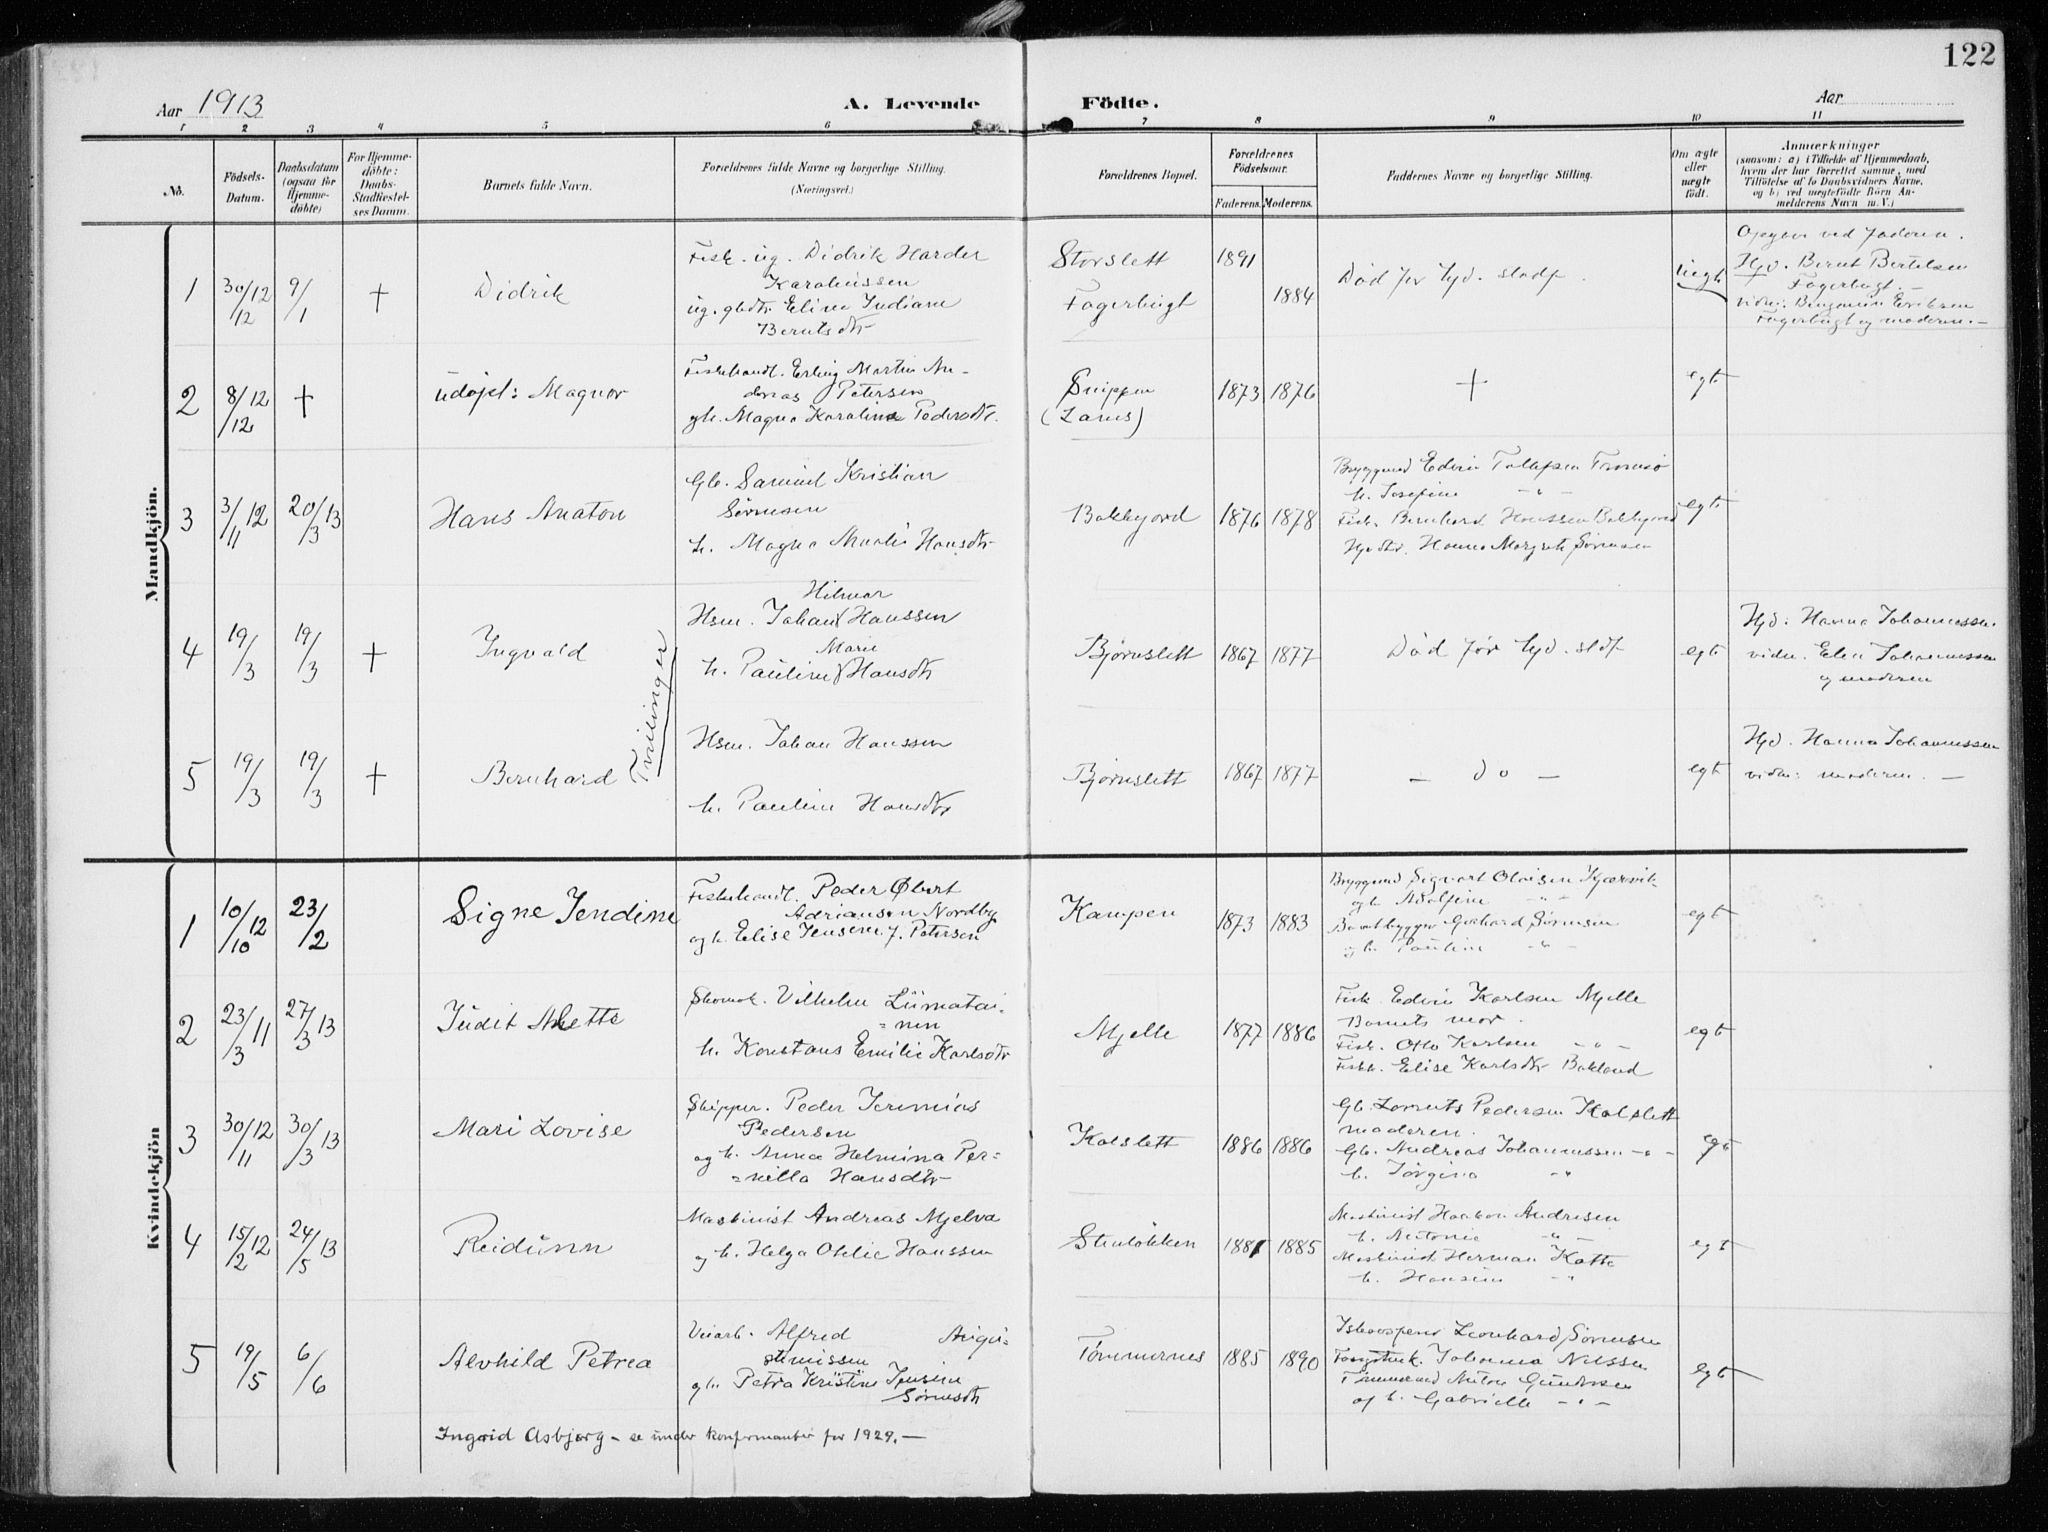 122
Aar 1913
A. Levende Födte.
Aar
1 2 3 4 5 6 7 8 9 10 11
No.
Födsels-
Datum.
Daabsdatum
(ogsaa for
Hjemme-
döbte)
For Hjemme-
döbte:
Daabs-
Stadfæstel-
ses Datum.
Barnets fulde Navn.
Forældrenes fulde Navne og borgerlige Stilling.
(Næringsvei.)
Forældrenes Bopæl.
Forældrenes
Födselsaar.
Faderens. Moderens.
Faddernes Navne og borgerlige Stilling.
Om ægte
eller
uægte
födt.
Anmærkninger
(saasom: a) i Tilfælde af Hjemmedaab,
hvem der har forrettet samme, med
Tilföielse af to Daabsvidners Navne,
og b) ved uægtefödte Börn An-
melderens Navn m. V.)
Mandkjön.
1 30/12 12 9/1 + Didrik
Fisk. ug. Didrik Harder
Karoliussen
ug. gbdtr Elina Indiane
Berntsdtr
Storslett 1891
Fagerbugt 1884
Død før hjd. stadf.
uegte
Opgivn ved faderen.
Hjd. Bernt Bertelsen
Fagerbugt. -
vidn: Benjamin Eriksen
Fagerbugt og moderen. -
2 8/12 12 + udøpt: Magnor
Fiskehandl. Erling Martin An-
dreas Petersen
gh. Magna Karoline Pedersdtr.
Snippen
(Lanes)
1873 1876 + egte
3 3/11 12 20/3 13 Hans Anaton
Gb. Samuel Kristian
Sørensen
h. Magna Amalie Hansdtr
Bakkejord 1876 1878
Bryggmd Edvin Tollefsen Tromsø
h. Josefine - " -
Fisk. Bernhard Hanssen Bakkejord
Hjdtr. Hanna Margrete Sørensen
egte
4 19/3 19/3 + Ingvald
Hilmar
Hsm. Johan Hanssen
Marie
h. Pauline Hansdtr
Bjørnslett 1867 1877
Død før hjd. stdf
egte
Hjd: Hanna Johannessen.
vidn. Elen Johannessen
og moderen
Tvillinger
5 19/3 19/3 + Bernhard
Hsm. Johan Hanssen
h. Pauline Hansdtr
Bjørnslett 1867 1877
- do -
egte
Hjd. Hanna Johannessen
vidn: moderen. -
Kvindekjön
1 10/10 12 23/2 Signe Jendine
Fiskehandl. Peder Øbert
Adriansen Nordby
og h. Elise Jensine f. Petersen
Kampen 1873 1883
Bryggmd Sigvart Olaisen Kjærvik
og h. Adolfine " "
Baadbygger Gerhard Sørensen
og h. Pauline - " -
egte
2 23/3 11 27/3 13 Judit Anette
Skomak. Vilhelm Liimatai-
=nen
h. Konstans Emilie Karlsdtr
Mjelle 1877 1886
Fisk. Edvin Karlsen Mjelle
Barnets mor.
Fisk. Otto Karlsen - " -
Fiskk. Elise Karlsdtr Bakland
egte
3 30/11 12 30/3 13 Mari Lovise
Skipper. Peder Jeremias
Pedersen
og h. Anna Helmina Per=
=nilla Hansdtr
Kalslett 1886 1886
Gb. Lorents Pedersen Kalslett
moderen.
Gb. Andreas Johannessen - " -
h. Jørgina - "
egte
4 15/2 12 24/5 13 Reidunn
Maskinist Andreas Mjelva
og h. Helga Otelie Hanssen
Stenløkken 1881 1885
Maskinist Haakon Andresen
h. Antonie - " -
Maskinist Herman Katte
h. Hansine - "
egte
5 19/5 6/6 Alvhild Petrea
Veiarb. Alfred Augu-
stinussen
og h. Petra Kristine Jensine
Sørensdtr
Tømmernes 1885 1890
Ishavsskipper Leonhard Sørensen
Johanna Nilssen
Tømmermd Anton Gundersen
og h. Gabrielle - " -
egte
Ingrid Asbjørg - se under konfirmanter for 1929. -